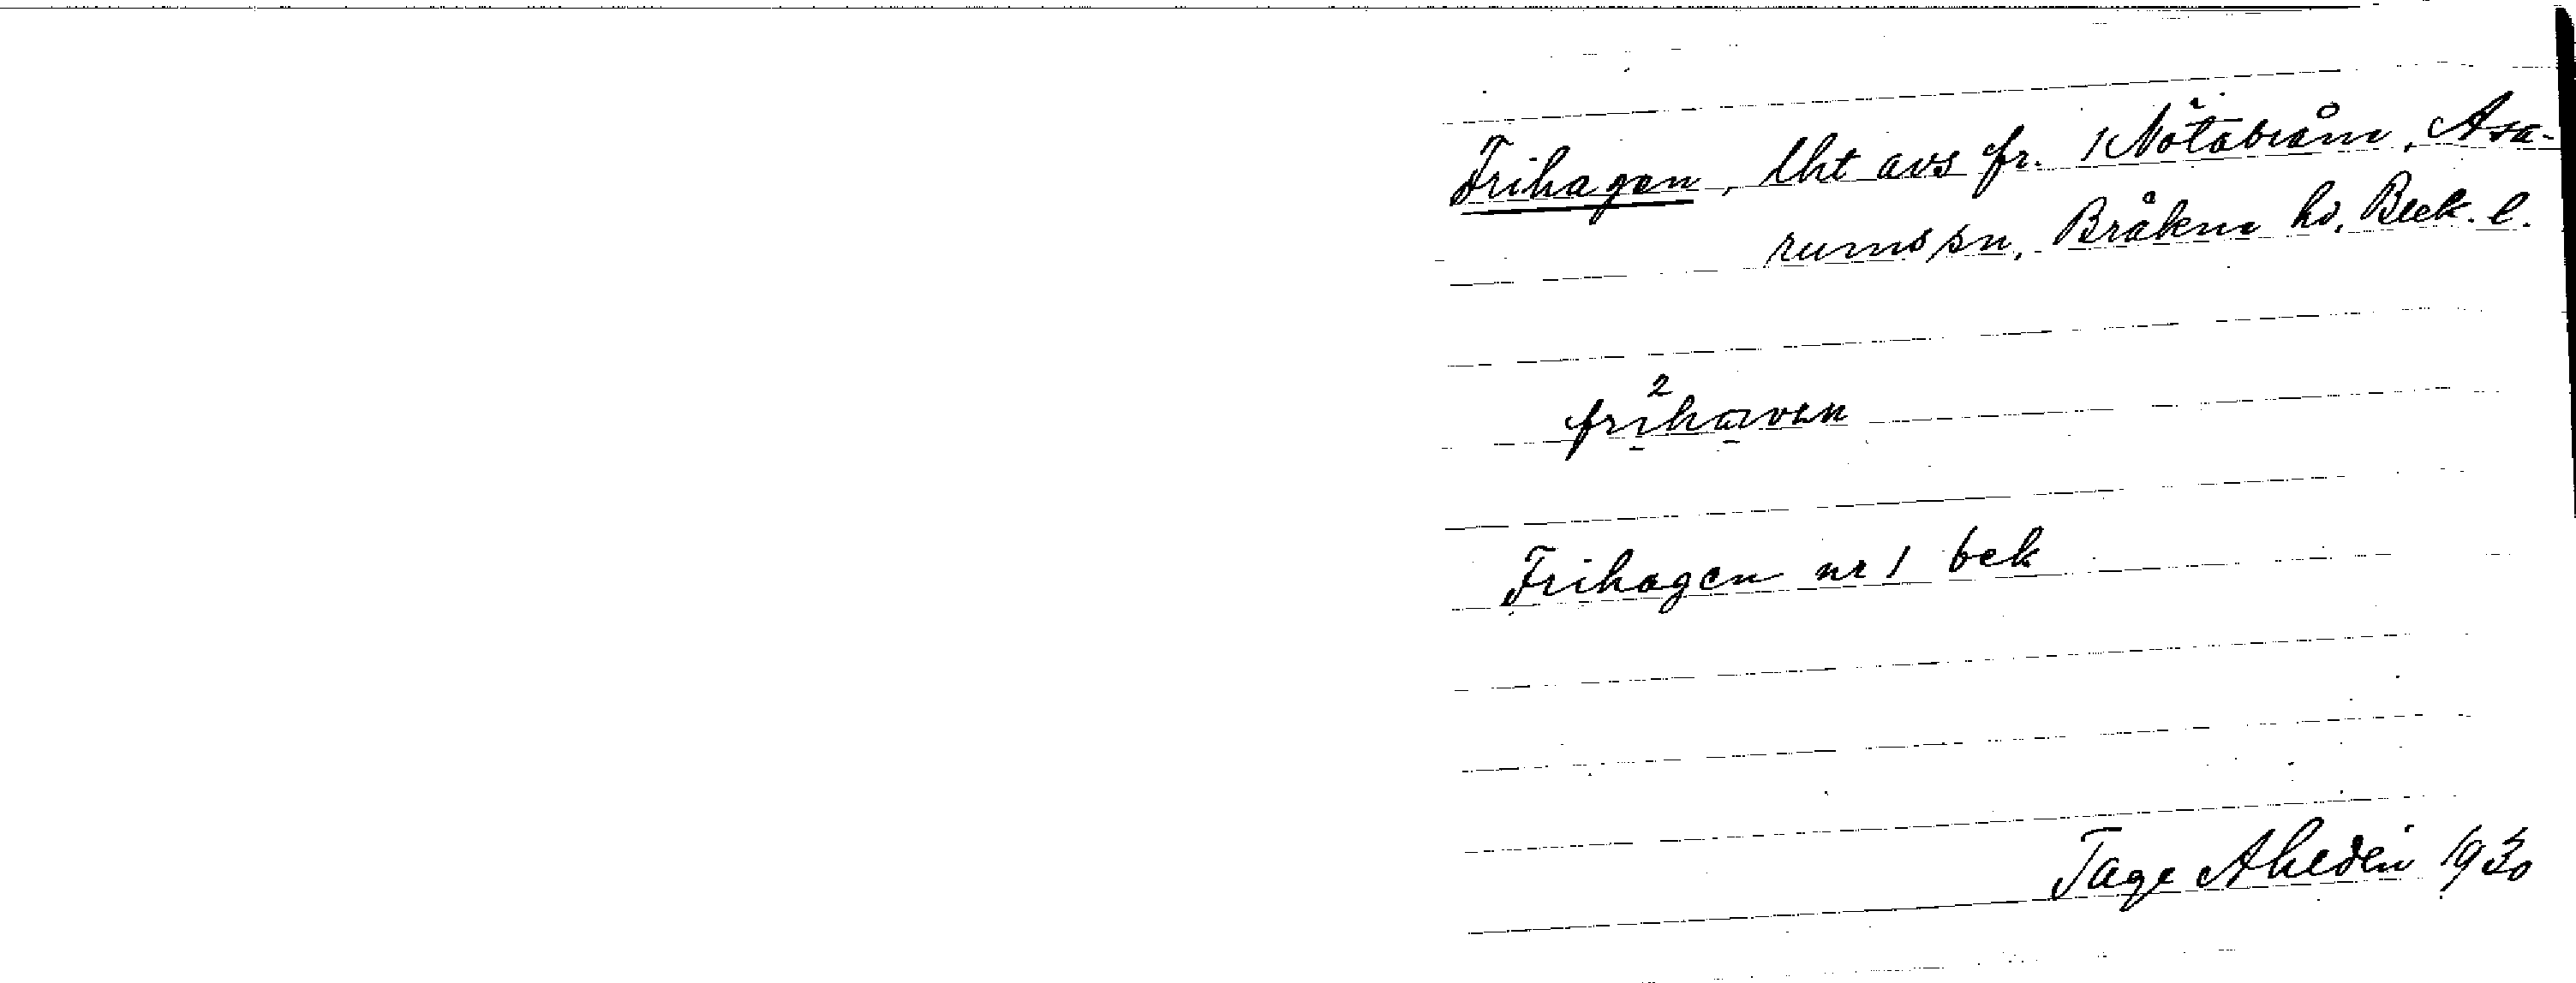 Frihagen, lht avs fr. 1 Nötabråne, Asa-
rums sn, Bräkne hd, Blek. l.
frihaven
Frihagen nr 1 bek
Tage Ahldén 1930